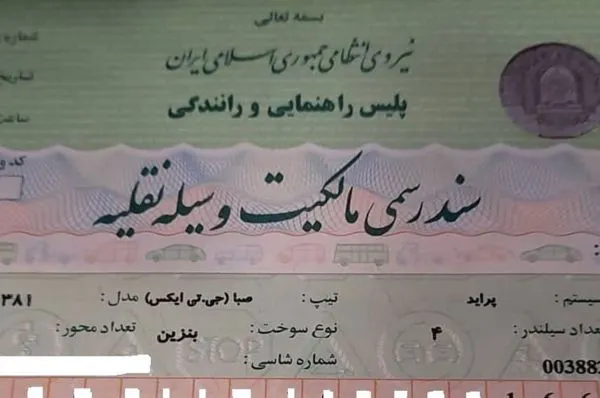 بسمه تعالی
نیروی انتظامی جمهوری اسلامی ایران
شماره
پلیس راهنمایی و رانندگی
تاریخ
ساعت
کد
سند رسمی مالکیت وسیله نقلیه
سیستم : پراید تیپ : صبا (جی.تی ایکس) مدل : ۳۸۱
تعداد سیلندر : ۴ نوع سوخت : بنزین تعداد محور :
شماره شاسی :
00388